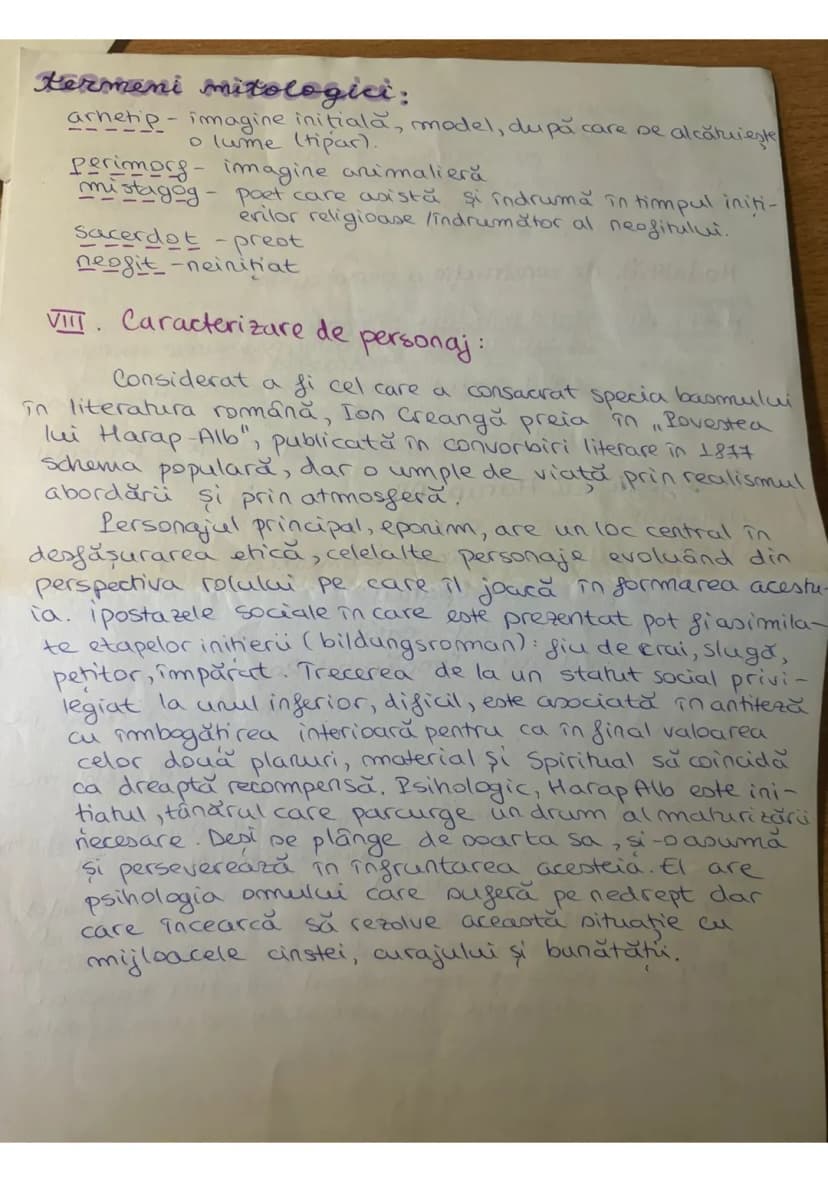 termeni mitologici:
arhetip - imagine inițială, model, după care se alcătuiește
o lume (tipar).
perimorf - imagine animalieră
mistagog - poet care asistă și îndrumă în timpul iniți-
erilor religioase /îndrumător al neofitului.
sacerdot - preot
neofit - neinițiat
VIII. Caracterizare de personaj:
Considerat a fi cel care a consacrat specia basmului
în literatura română, Ion Creangă preia în „Povestea
lui Harap-Alb", publicată în convorbiri literare în 1877
schema populară, dar o umple de viață prin realismul
abordării și prin atmosferă.
Personajul principal, eponim, are un loc central în
desfășurarea etică, celelalte personaje evoluând din
perspectiva rolului pe care îl joacă în formarea acestu-
ia. ipostazele sociale în care este prezentat pot fi asimila-
te etapelor inițierii (bildungsroman): fiu de crai, slugă,
pețitor, împărat. Trecerea de la un statut social privi-
legiat la unul inferior, dificil, este asociată în antiteză
cu îmbogățirea interioară pentru ca în final valoarea
celor două planuri, material și Spiritual să coincidă
ca dreaptă recompensă. Psihologic, Harap Alb este ini-
țiatul, tânărul care parcurge un drum al maturizării
necesare. Deși se plânge de soarta sa, și-o asumă
și perseverează în înfruntarea acesteia. El are
psihologia omului care suferă pe nedrept dar
care încearcă să rezolve această situație cu
mijloacele cinstei, curajului și bunătății.